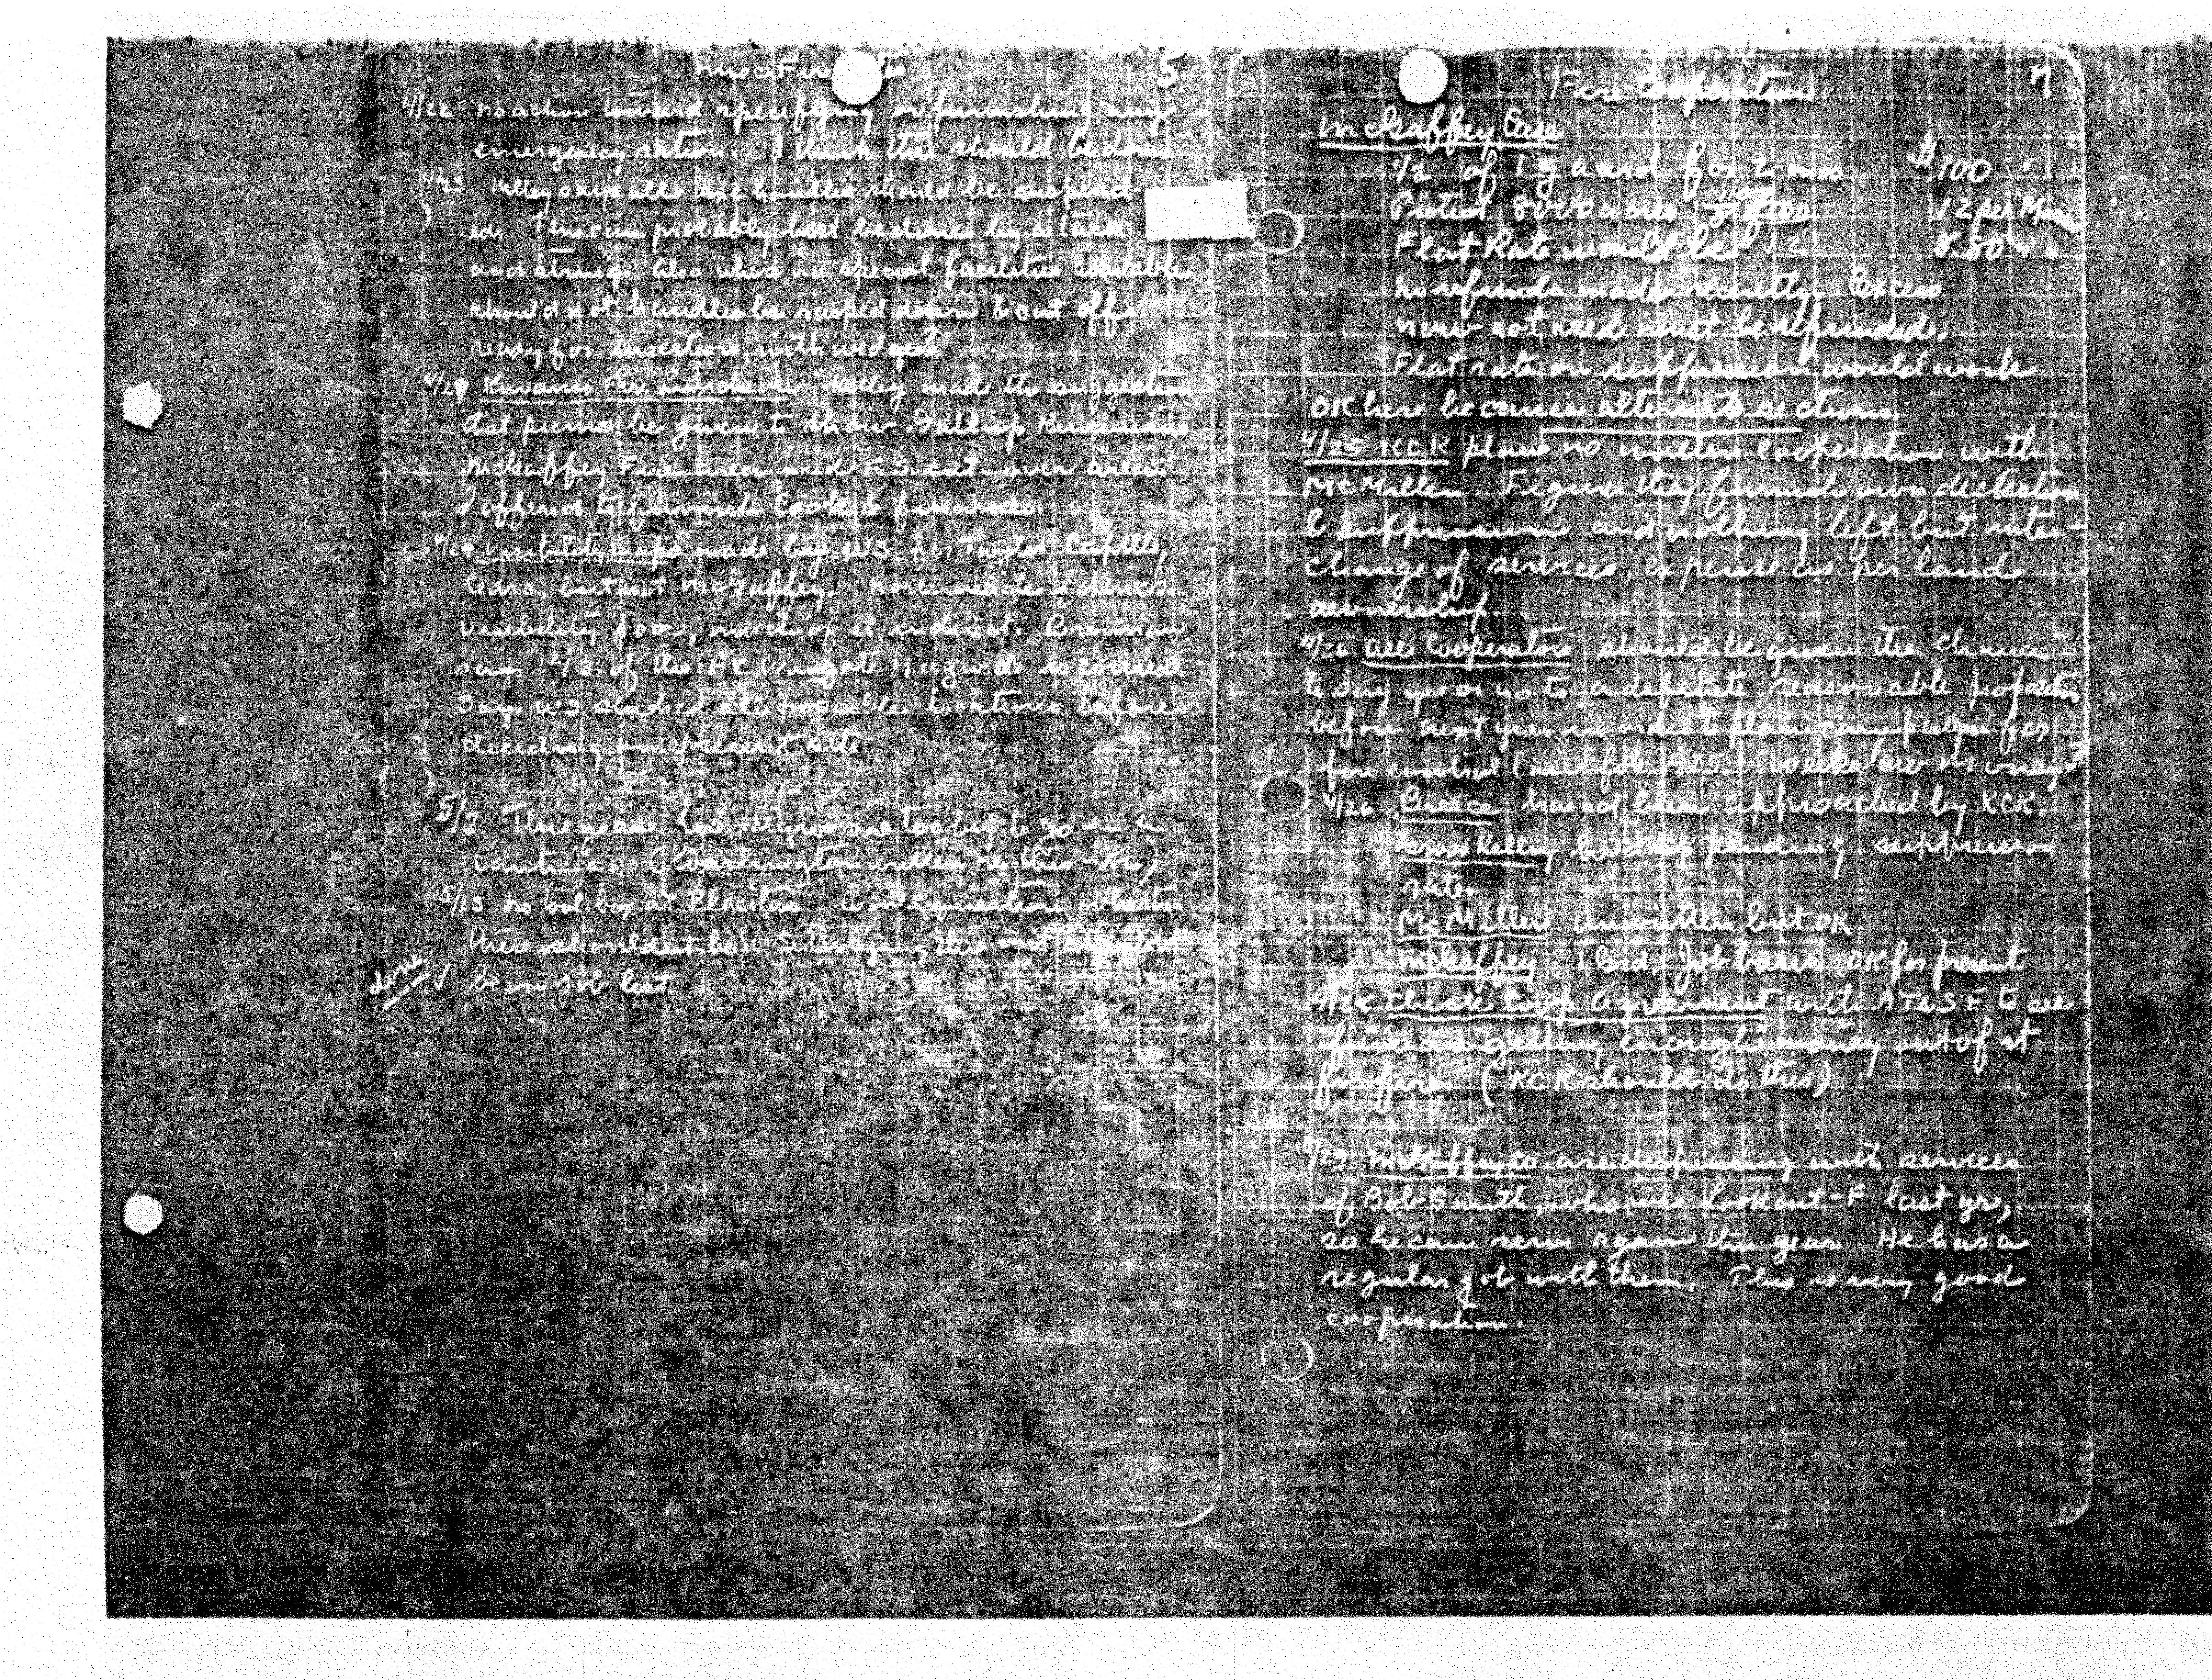 Misc Fire
5
4/22 No action toward specifying or furnishing any
emergency rations. I think this should be done.
4/23 Kelley says all axe handles should be suspend-
ed. This can probably best be done by a tack
and string. Also where no special facilities available
should not handles be rasped down & cut off
ready for insertion, with wedge?
4/29 Kiwanis Fire Luncheon. Kelley made the suggestion
that picnic be given to show Gallup Kiwanians
McGaffey Fire area and F.S. cut-over area.
I offered to furnish Cook & finances.
4/29 Visibility maps made by WS for Taylor, Capillo,
Cedro, but not McGaffey. None made
visibility poor, much of it indirect. Brennan
says 2/3 of the Ft Wingate Hazards is covered.
Says WS studied all possible locations before
deciding on present site.
5/7 This year's are too big to go in
canteens. (Washington written re this - AL)
5/13 No tool box at Placitas. Won't question whether
there shouldn't be.
done ✓ be on job list.
Fire Cooperation
7
McGaffey Case
1/2 of 1 guard for 2 mos $100
Protect 8000 acres 12 per M
Flat Rate would be 12 8.80 " "
No refunds made recently. Excess
now not used must be refunded.
Flat rate on suppression would work
OK here because alternate sections.
4/25 KCK plans no written cooperation with
McMillen. Figures they furnish own detection
& suppression and nothing left but inter-
change of services, expense as per land
ownership.
4/26 All Cooperators should be given the chance
to say yes or no to a definite reasonable proposition
before next year in order to plan campaign for
fire control law for 1925. Weeks law money?
4/26 Breece has not been approached by KCK.
Kelley held up pending suppression
rate.
McMillen unwritten but OK
McGaffey 1 Grd. Job basis OK for present
4/28 Check Coop Agreement with AT&SF to see
if we are getting enough money out of it
for fire. (KCK should do this)
4/29 McGaffey Co are dispensing with services
of Bob Smith, who was Lookout-F last yr,
so he can serve again this year. He has a
regular job with them. This is very good
cooperation.